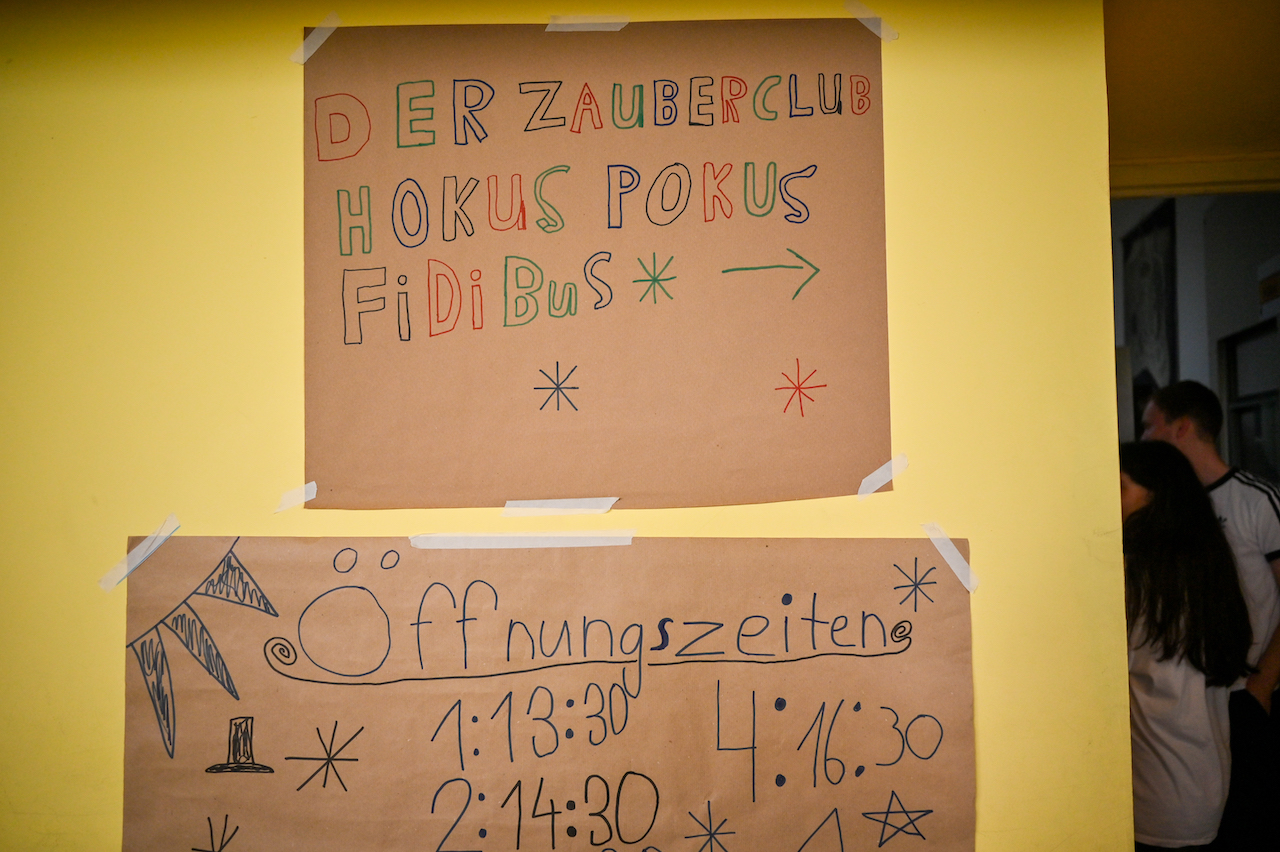 DER ZAUBERCLUB
HOKUS POKUS
FiDiBuS
Öffnungszeiten
1:13:30
4:16:30
2:14:30